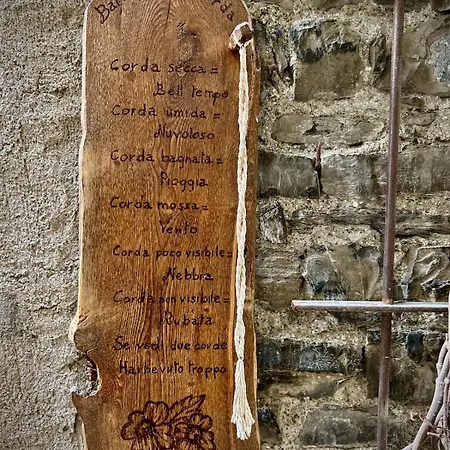 Corda secca =
Bell tempo
Corda umida =
Nuvoloso
Corda bagnata =
Pioggia
Corda mossa =
Vento
Corda poco visibile =
Nebbia
Corda non visibile =
Rubata
Se vedi due corde
Hai bevuto troppo